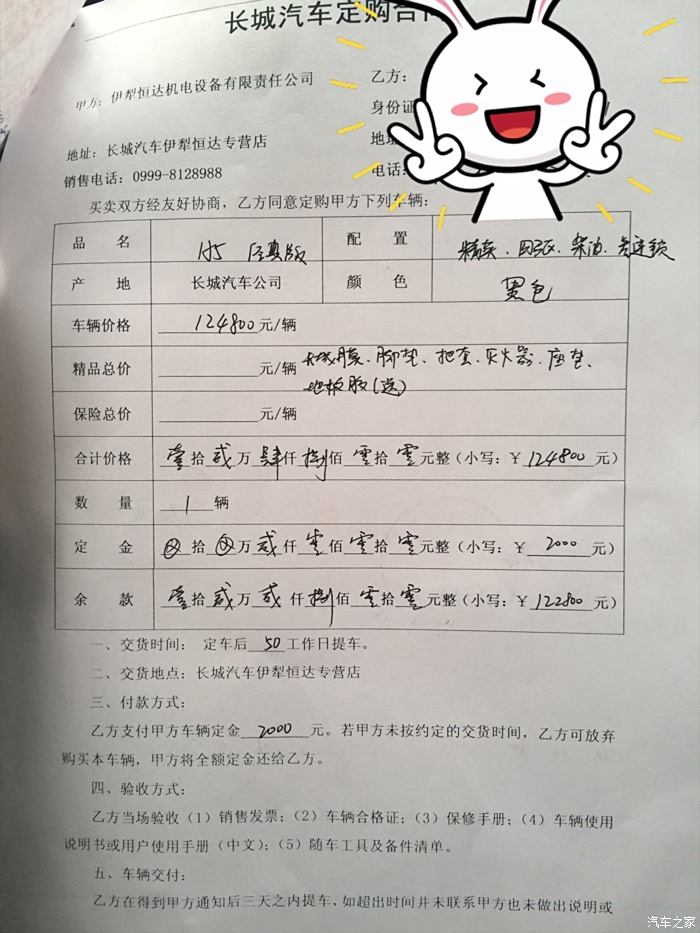 长城汽车定购合
甲方：伊犁恒达机电设备有限责任公司 乙方：
身份证
地址：长城汽车伊犁恒达专营店 地
销售电话：0999-8128988 电话：
买卖双方经友好协商，乙方同意定购甲方下列车辆：
品 名 H5 经典版 配 置 精英、四驱、柴油、差速锁
产 地 长城汽车公司 颜 色 色
车辆价格 124800元/辆
精品总价 元/辆 长城膜、脚垫、把套、灭火器、座垫、
地板胶(送)
保险总价 元/辆
合计价格 壹拾贰万肆仟捌佰零拾零元整（小写：￥124800元）
数 量 1 辆
定 金 ⊗拾⊗万贰仟零佰零拾零元整（小写：￥2000元）
余 款 壹拾贰万贰仟捌佰零拾零元整（小写：￥122800元）
一、交货时间： 定车后50工作日提车。
二、交货地点：长城汽车伊犁恒达专营店
三、付款方式：
乙方支付甲方车辆定金2000元。若甲方未按约定的交货时间，乙方可放弃
购买本车辆，甲方将全额定金还给乙方。
四、验收方式：
乙方当场验收（1）销售发票；（2）车辆合格证；（3）保修手册；（4）车辆使用
说明书或用户使用手册（中文）；（5）随车工具及备件清单。
五、车辆交付：
乙方在得到甲方通知后三天之内提车，如超出时间并未联系甲方也未做出说明或
汽车之家